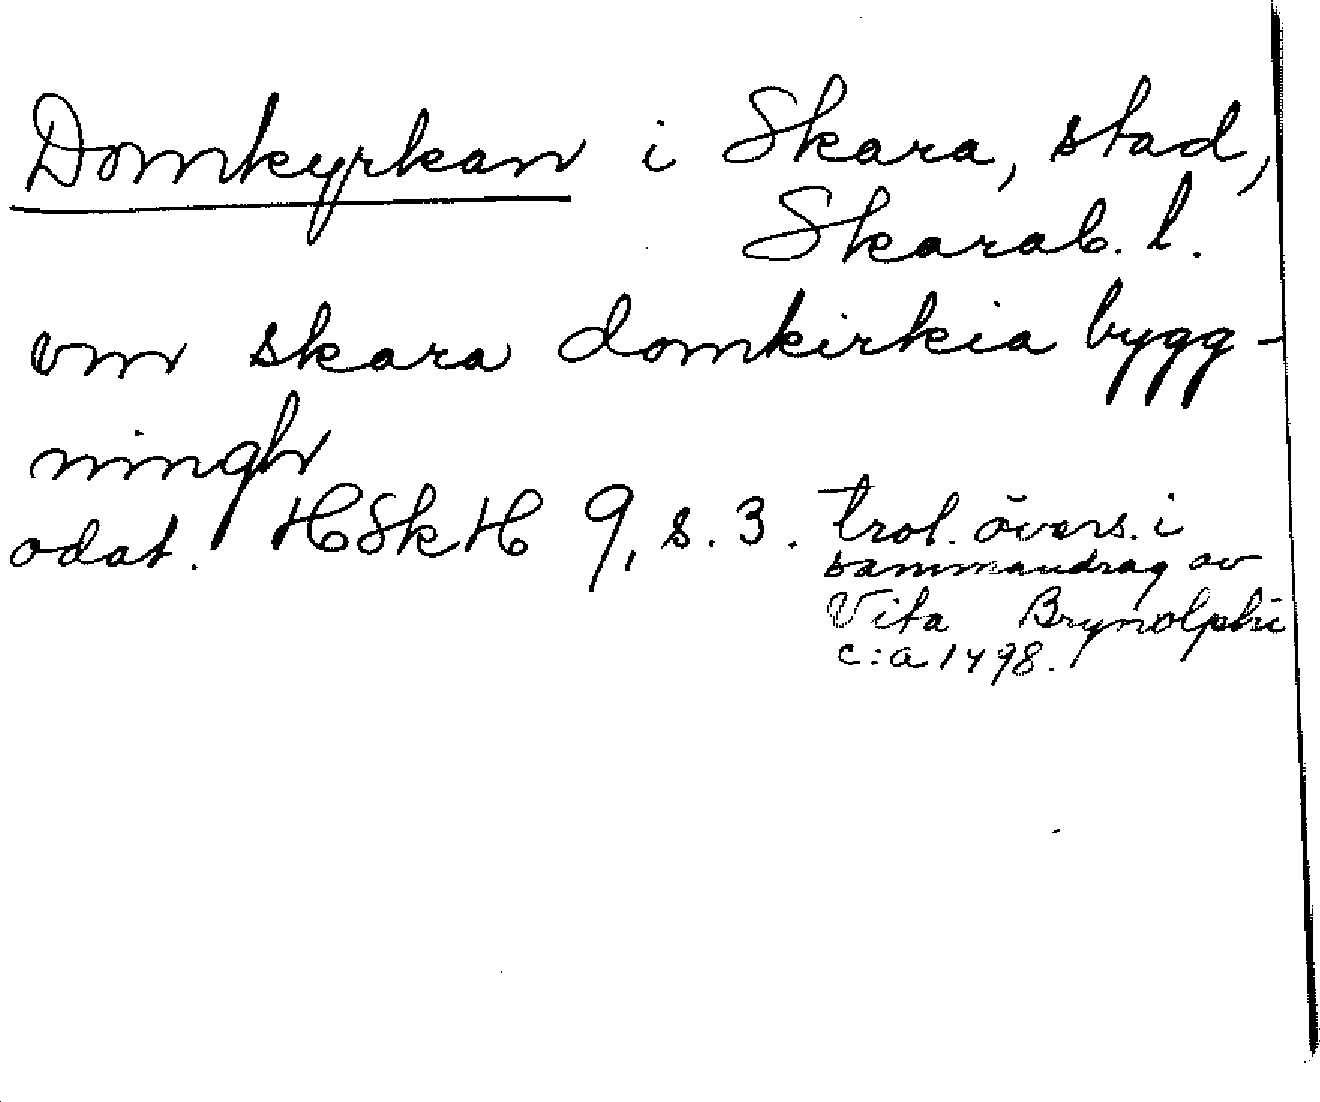 Domkyrkan i Skara, stad,
Skarab. l.
vm skara domkirkia bygg-
ningh
odat. HSkH 9, s. 3. trol. övers. i
sammandrag av
Vita Brynolphi
c:a 1498.